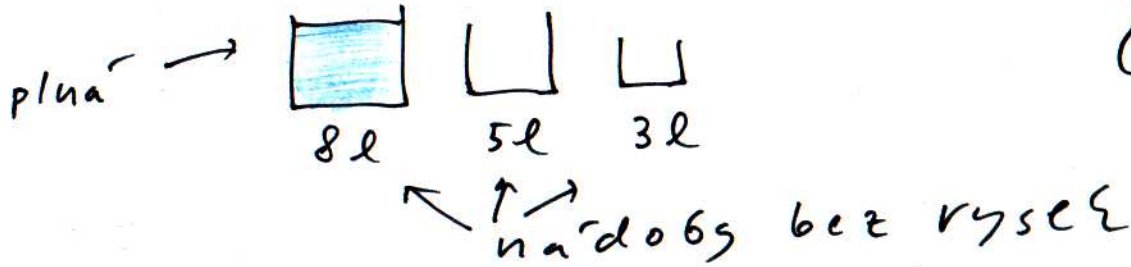 plná
8l 5l 3l
nádoby bez rysek